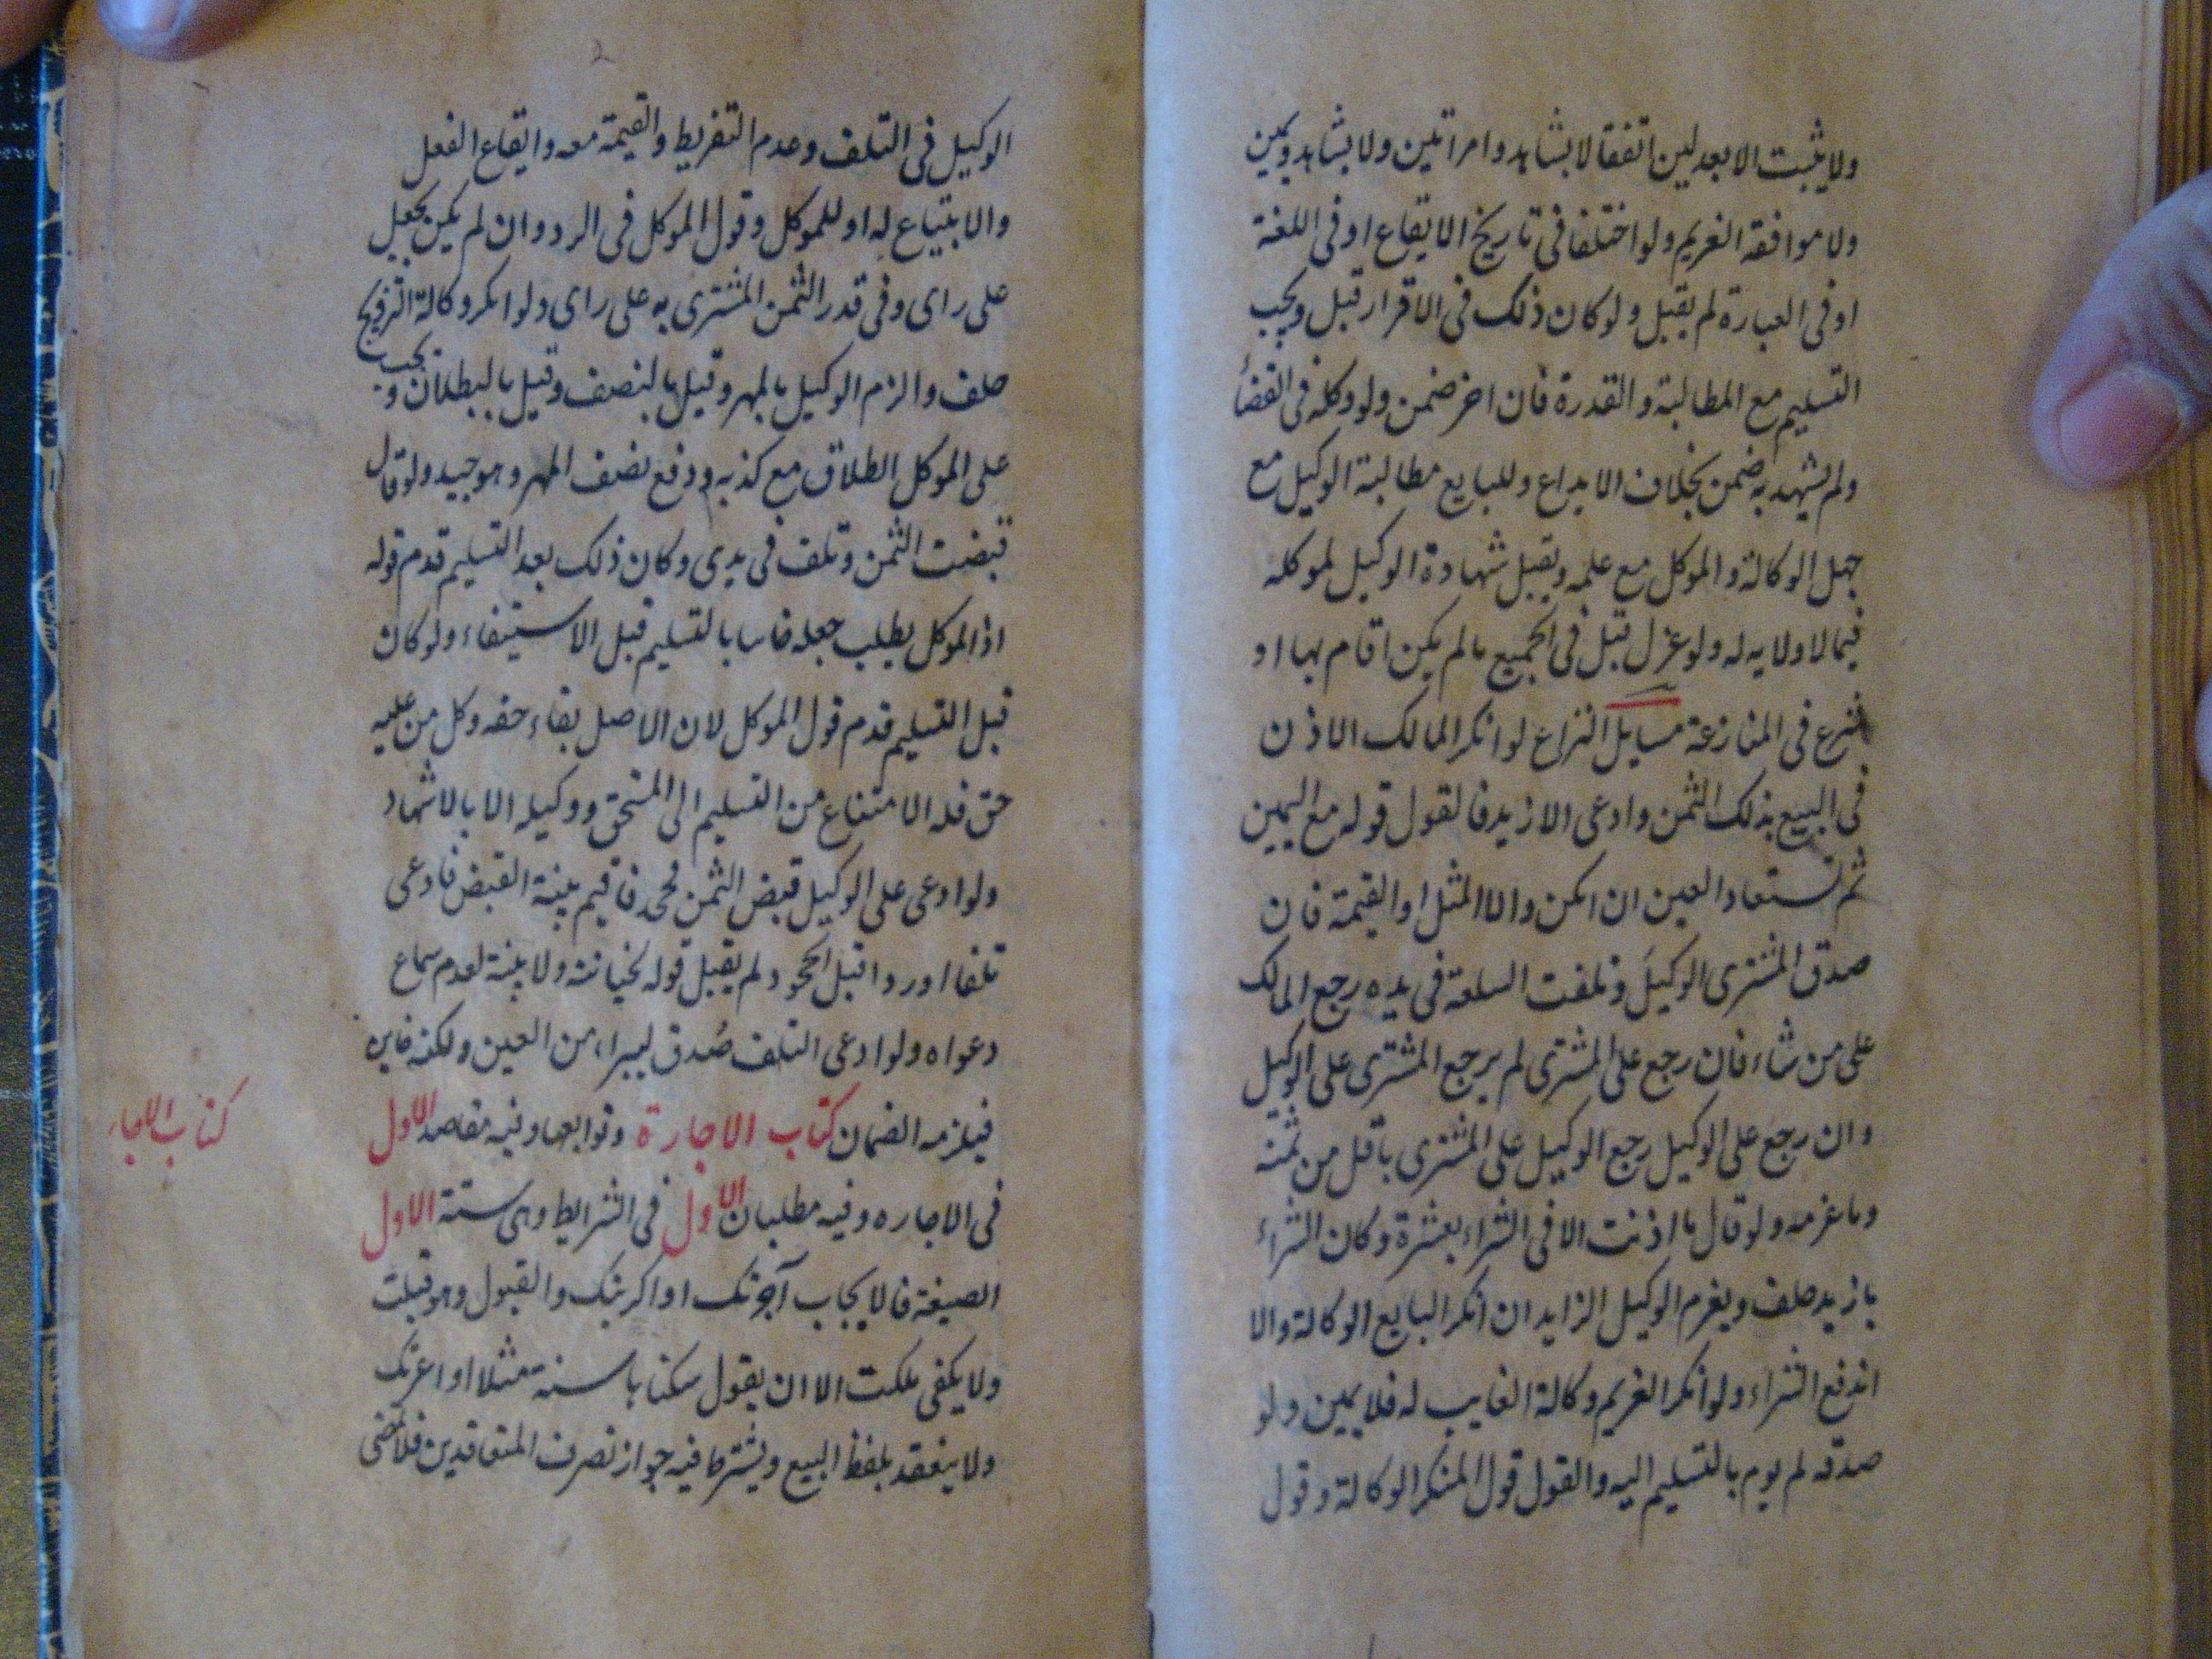 ولا يثبت الا بعدلين اتفقا لا بشاهد وامراتين ولا بشاهد ويمين
ولا موافقة الغريم ولو اختلفا فى تاريخ الايقاع او فى اللغة
او فى العبارة لم يقبل ولو كان ذلك فى الاقرار قبل ويجب
التسليم مع المطالبة والقدرة فان اخر ضمن ولو وكله فى القضأ
ولم يشهد به ضمن بخلاف الايداع وللبايع مطالبة الوكيل مع
جهل الوكالة والموكل مع علمه ويقبل شهادة الوكيل لموكله
فيما لا ولايه له ولو عزل قبل فى الجميع مالم يكن اقام بها او
شرع فى المنازعة مسايل النزاع لو انكر المالك الاذن
فى البيع بذلك الثمن وادعى الازيد فالقول قوله مع اليمين
ثم تستعاد العين ان امكن والا المثل او القيمة فان
صدق المشترى الوكيل وتلفت السلعة فى يده رجع المالك
على من شاء فان رجع على المشترى لم يرجع المشترى على الوكيل
وان رجع على الوكيل رجع الوكيل على المشترى باقل من ثمنه
وما غرمه ولو قال ما اذنت الا فى الشراء بعشرة وكان الشراء
بازيد حلف ويغرم الوكيل الزايد ان انكر البايع الوكالة والا
اندفع الشراء ولو انكر الغريم وكالة الغايب له فلا يمين ولو
صدقه لم يوم بالتسليم اليه والقول قول المنكر الوكالة وقول
الوكيل فى التلف وعدم التفريط والقيمة معه وايقاع الفعل
والابتياع له او للموكل وقول الموكل فى الرد وان لم يكن بجعل
على راى وفى قدر الثمن المشترى به على راى ولو انكر وكالة التزويج
حلف والزم الوكيل بالمهر وقيل بالنصف وقيل بالبطلان ويجب
على الموكل الطلاق مع كذبه ودفع نصف المهر وهو جيد ولو قال
قبضت الثمن وتلف فى يدى وكان ذلك بعد التسليم قدم قوله
اذ الموكل يطلب جعله خاينا بالتسليم قبل الاستيفاء ولو كان
قبل التسليم قدم قول الموكل لان الاصل بقاء حقه وكل من عليه
حق فله الامتناع من التسليم الى المستحق ووكيله الا بالاشهاد
ولو ادعى على الوكيل قبض الثمن فجحد فاقيم بينة القبض فادعى
تلفا او ردا قبل الجحود لم يقبل قوله لخيانته ولا بينة لعدم سماع
دعواه ولو ادعى التلف صُدق ليبراء من العين ولكنه خاين
فيلزمه الضمان كتاب الاجارة وتوابعها وفيه مقاصد الاول
كتاب الاجار
فى الاجاره وفيه مطلبان الاول فى الشرايط وهى ستة الاول
الصيغة فالايجاب آجرتك او اكريتك والقبول وهو قبلت
ولا يكفى ملكت الا ان يقول سكناها سنة مثلا او اعرتك
ولا ينعقد بلفظ البيع ويشترط فيه جواز تصرف المتعاقدين فلا تمضى